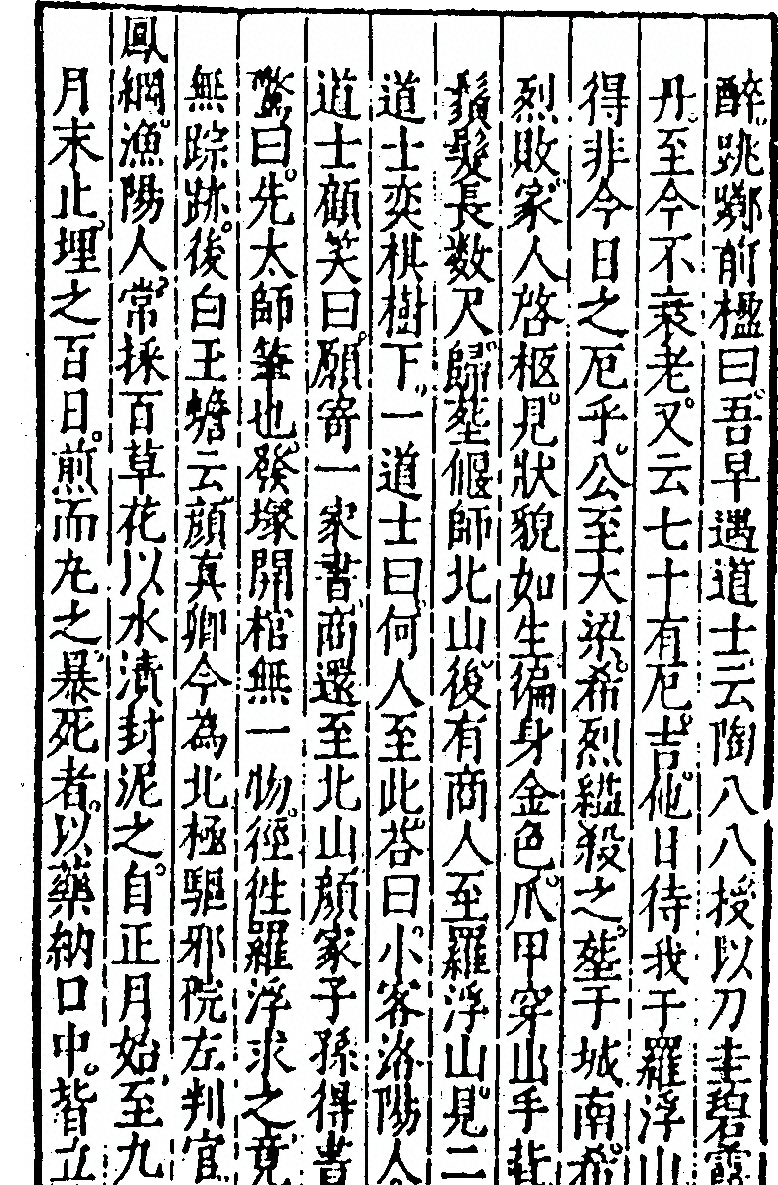 醉跳躑前楹曰吾早遇道士云陶八八授以刀圭碧霞
丹至今不衰老又云七十有厄吉他日待我于羅浮山
得非今日之厄乎公至大梁希烈縊殺之塟于城南希
烈敗家人啓柩見狀貌如生徧身金色爪甲穿出手背
鬚髮長数尺歸塟偃師北山後有商人至羅浮山見二
道士奕棋樹下一道士曰何人至此荅曰小客洛陽人
道士顧笑曰願寄一家書商還至北山顔家子孫得書
驚曰先太師筆也發塚開棺無一物徑徃羅浮求之竟
無踪跡後白玉蟾云顔真卿今為北極驅邪院左判官
鳳綱漁陽人常採百草花以水漬封泥之自正月始至九
月末止埋之百日煎而丸之暴死者以藥納口中皆立